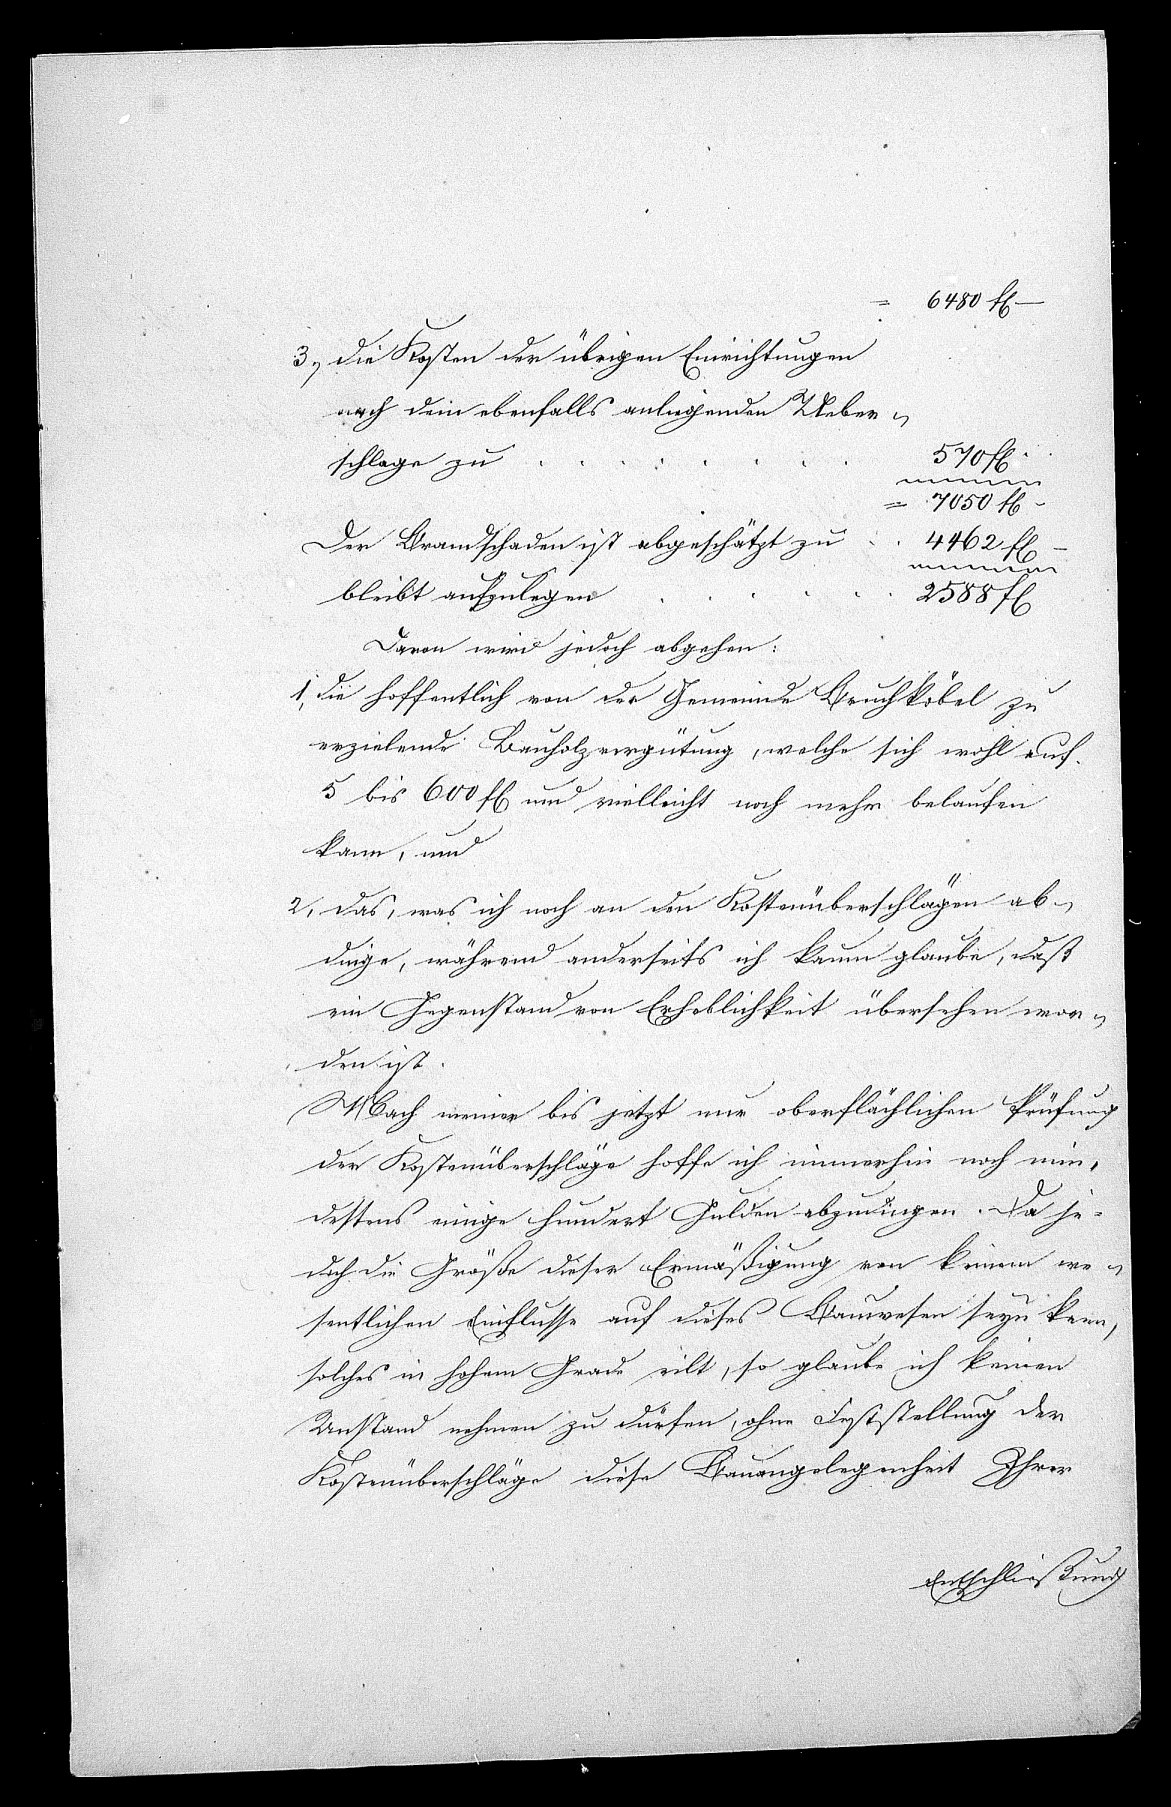 = 6480 fl –
3., die Kosten der übrigen Einrichtungen
nach dem ebenfalls anliegenden Ueber-
schlage zu . . . . . . . . 570 fl.
= 7050 fl -
Der Brandschaden ist abgeschätzt zu . . 4462 fl –
bleibt aufzulegen . . . . . . 2588 fl
Davon wird jedoch abgehen:
1, die hoffentlich von der Gemeinde Bruchköbel zu
erzielende Bauholzvergütung, welche sich wohl auf
5 bis 600 fl und vielleicht noch mehr belaufen
kann, und
2, das, was ich noch an den Kostenüberschlägen ab-
dinge, während anderseits ich kaum glaube, daß
ein Gegenstand von Erheblichkeit übersehen wor-
den ist.
Nach meiner bis jetzt nur oberflächlichen Prüfung
der Kostenüberschläge hoffe ich immerhin noch min-
destens einige hundert Gulden abzudingen. Da je-
doch die Größe dieser Ermäßigung von keinem we-
sentlichen Einflusse auf dieses Bauwesen seyn kann,
solches in hohem Grade eilt, so glaube ich keinen
Anstand nehmen zu dürfen, ohne Feststellung der
Kostenüberschläge diese Bauangelegenheit Ihrer
Entschließung